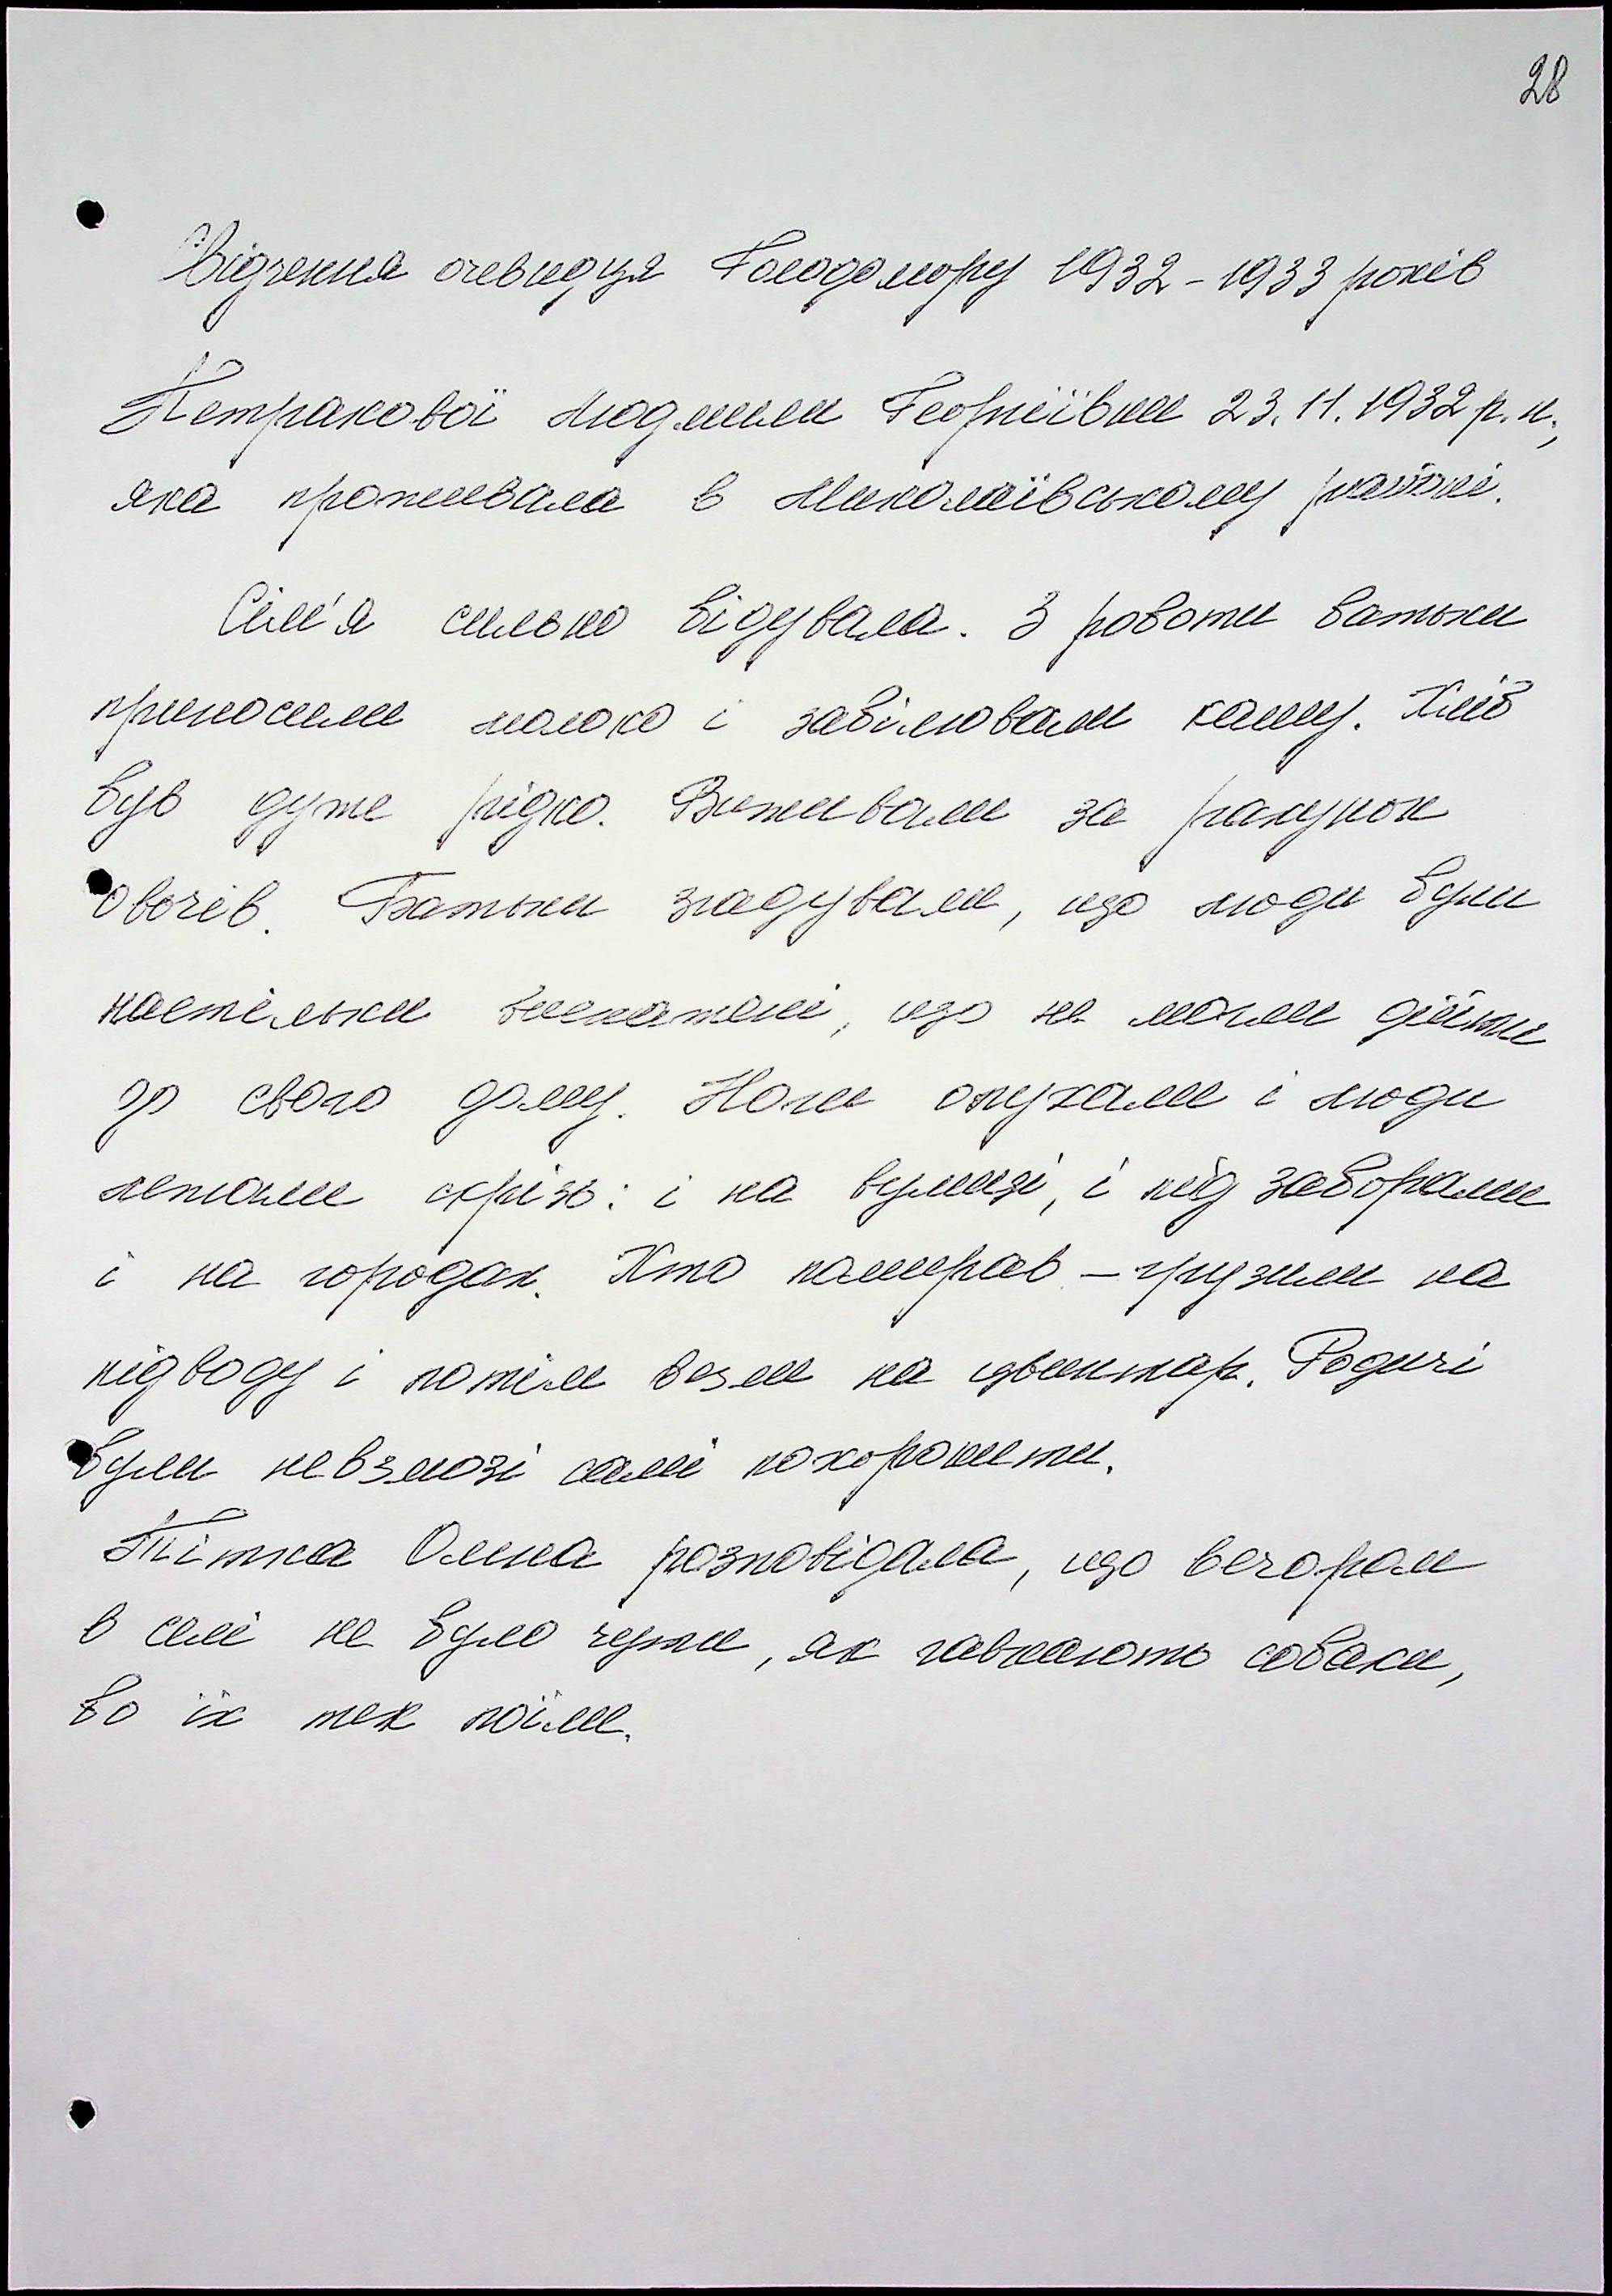 28
Свідчення очевидця Голодомору 1932-1933 років
Петракової Людмили Георгіївни 23.11.1932 р.н.,
яка проживала в Миколаївському районі.
Сім'я сильно бідувала. З роботи батьки
приносили молоко і забілювали кашу. Хліб
був дуже рідко. Виживали за рахунок
овочів. Батьки згадували, що люди були
настільки виснажені, що не могли дійти
до свого дому. Ноги опухали і люди
лежали скрізь: і на вулиці, і під заборами
і на городах. Хто помирав - грузили на
підводу і потім везли на цвинтар. Родичі
були невзмозі самі похоронити.
Тітка Олина розповідала, що вечорам
в селі не було чути, як гавкають собаки,
бо їх теж поїли.